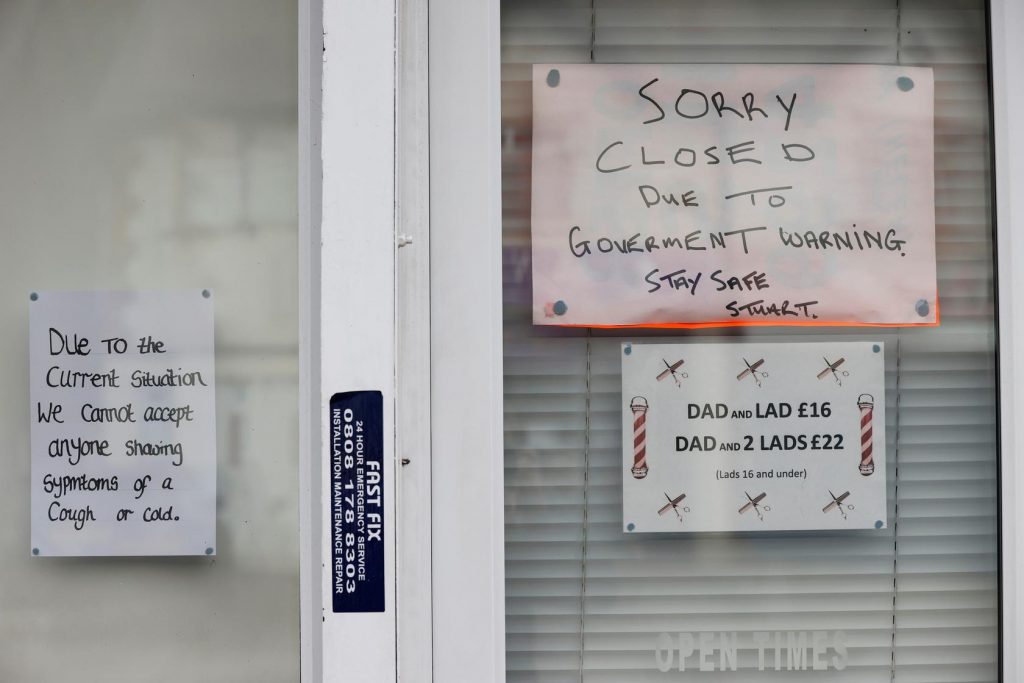 Due to the
Current Situation
We Cannot accept
anyone showing
sypmtoms of a
Cough or cold.
FAST FIX
24 HOUR EMERGENCY SERVICE
0808 178 8303
INSTALLATION MAINTENANCE REPAIR
SORRY
CLOSED
DUE TO
GOVERMENT WARNING.
STAY SAFE
STUART.
DAD AND LAD £16
DAD AND 2 LADS £22
(Lads 16 and under)
OPEN TIMES